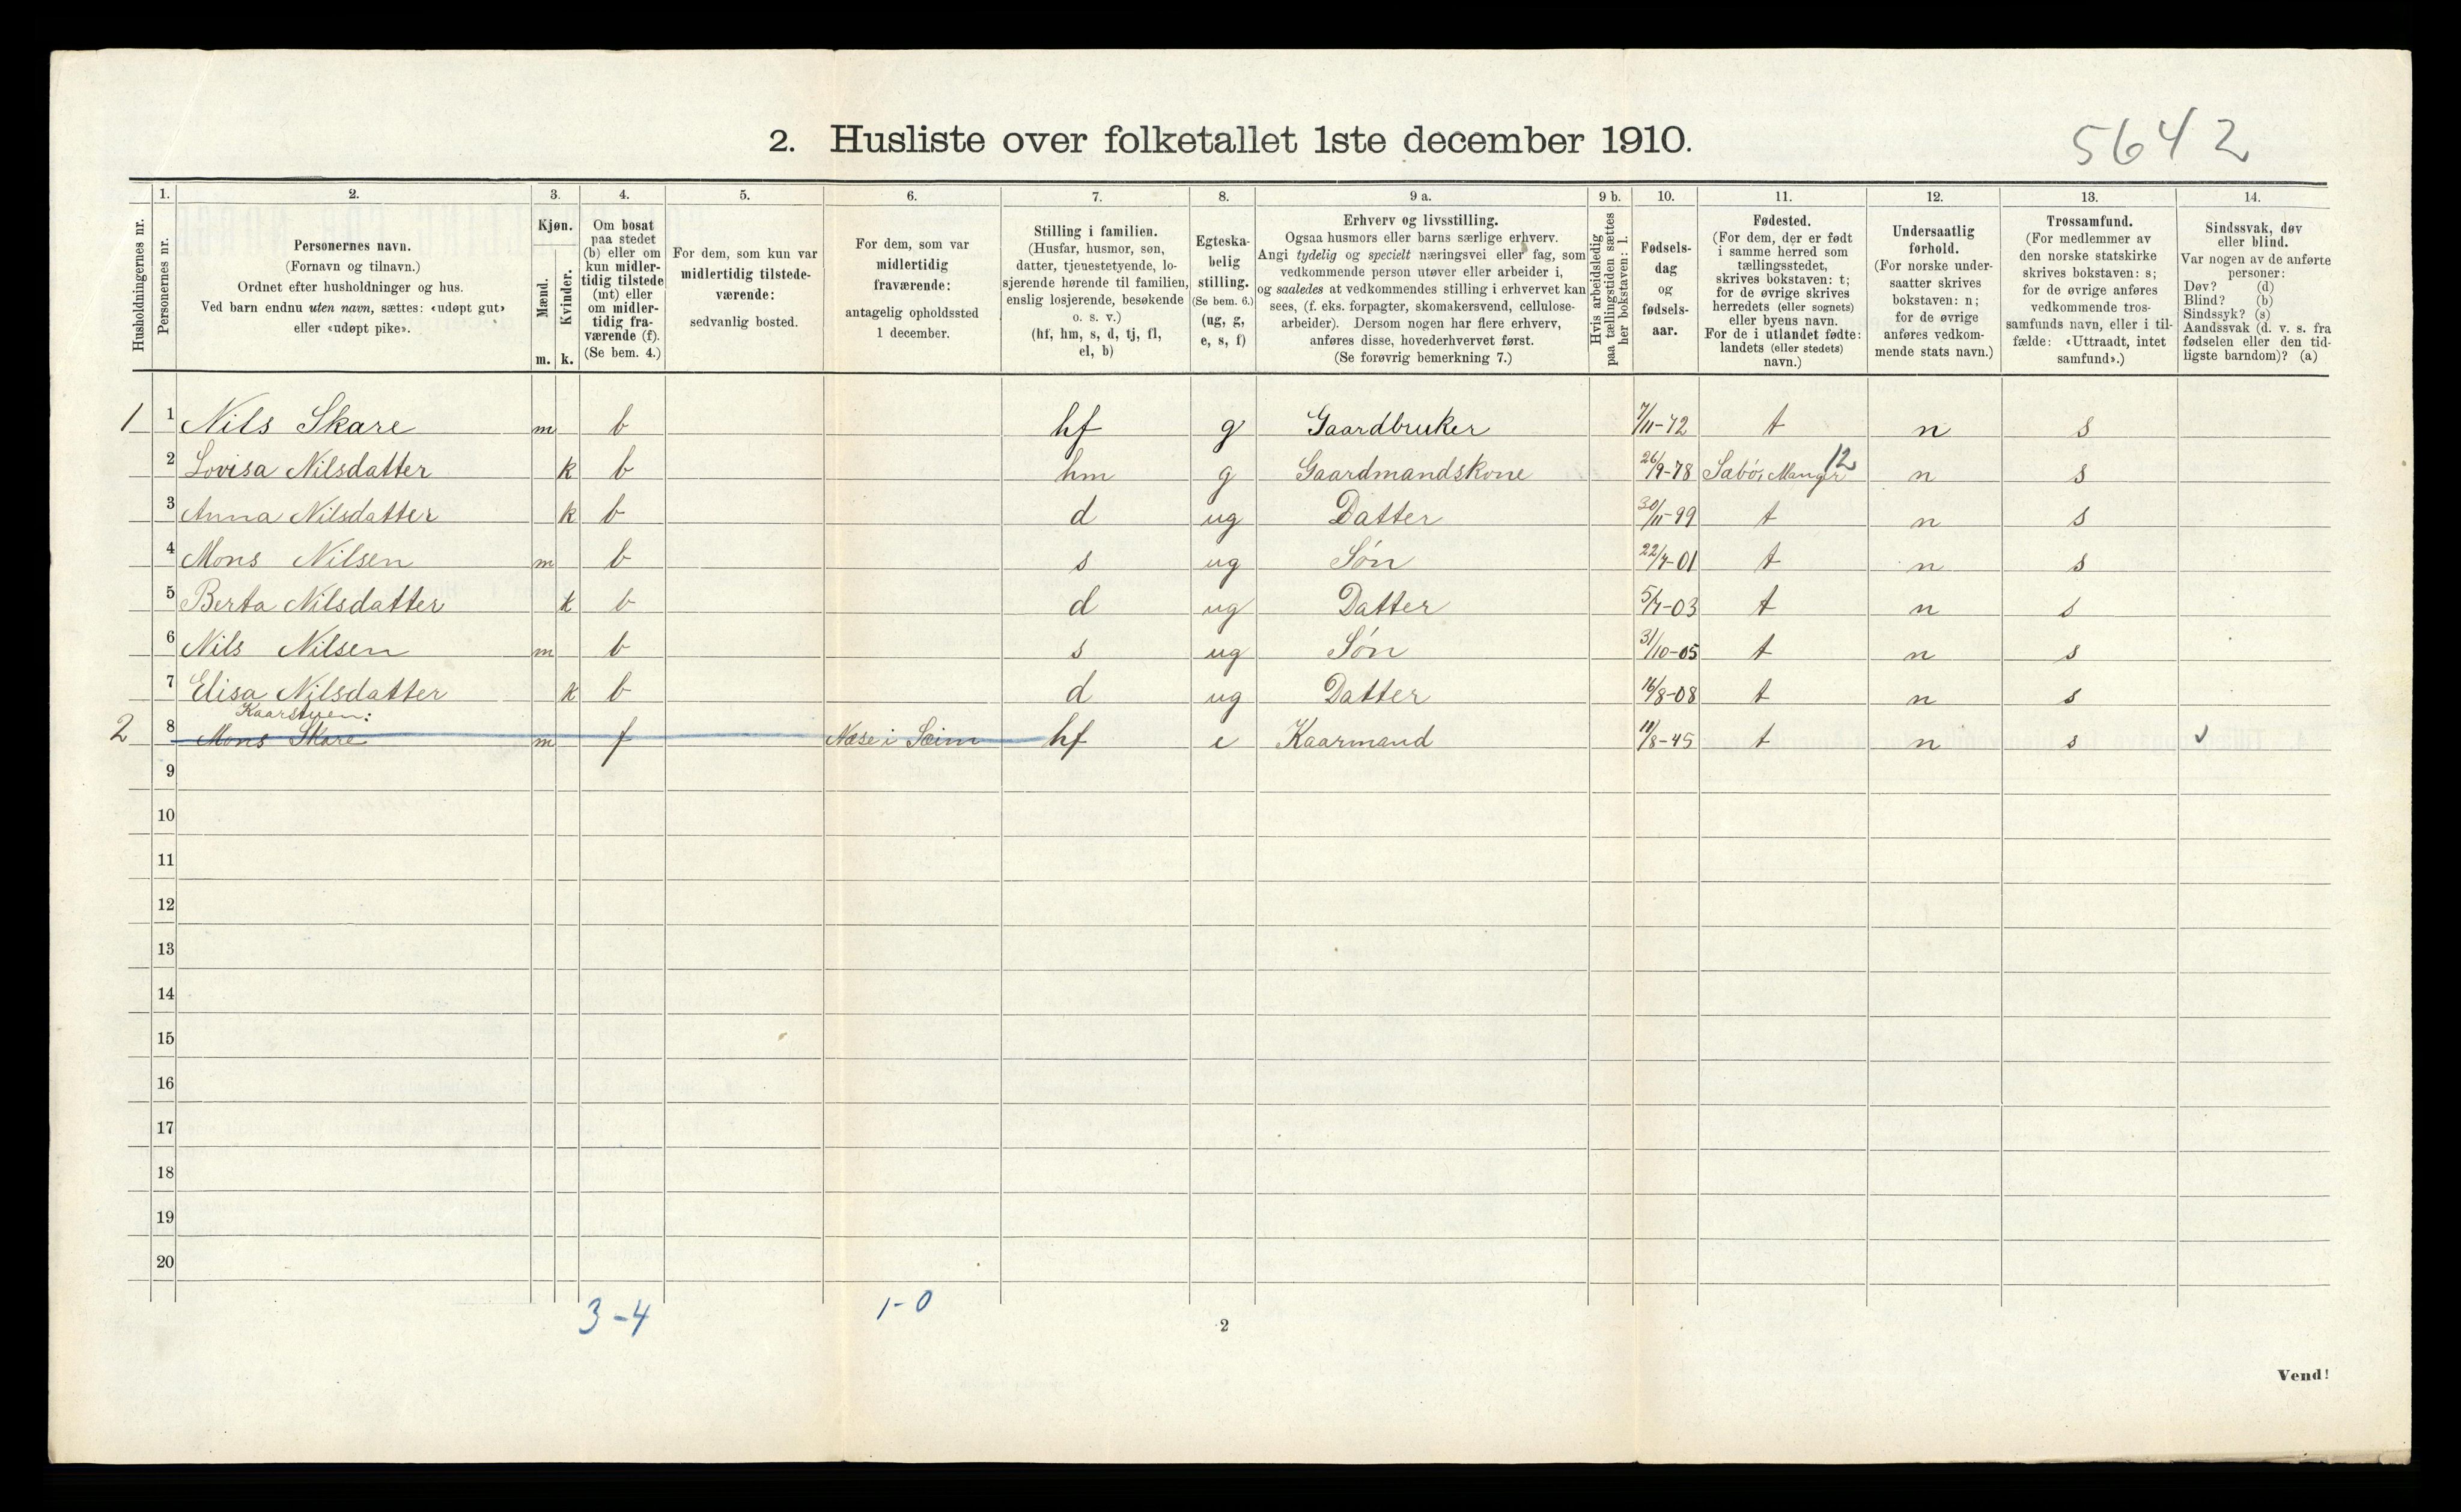 5642
2. Husliste over folketallet 1ste december 1910.
Husholdningernes nr.
1.
Personernes nr.
2.
Personernes navn.
(Fornavn og tilnavn.)
Ordnet efter husholdninger og hus.
Ved barn endnu uten navn, sættes: «udøpt gut»
eller «udøpt pike».
3.
Kjøn.
Mænd.
Kvinder.
m. k.
4.
Om bosat
paa stedet
(b) eller om
kun midler-
tidig tilstede
(mt) eller
om midler-
tidig fra-
værende (f).
(Se bem. 4.)
5.
For dem, som kun var
midlertidig tilstede-
værende:
sedvanlig bosted.
6.
For dem, som var
midlertidig
fraværende:
antagelig opholdssted
1 december.
7.
Stilling i familien.
(Husfar, husmor, søn,
datter, tjenestetyende, lo-
sjerende hørende til familien,
enslig losjerende, besøkende
o. s. v.)
(hf, hm, s, d, tj, fl,
el, b)
8.
Egteska-
belig
stilling.
(Se bem. 6.)
(ug, g,
e, s, f)
9 a.
Erhverv og livsstilling.
Ogsaa husmors eller barns særlige erhverv.
Angi tydelig og specielt næringsvei eller fag, som
vedkommende person utøver eller arbeider i,
og saaledes at vedkommendes stilling i erhvervet kan
sees, (f. eks. forpagter, skomakersvend, cellulose-
arbeider). Dersom nogen har flere erhverv,
anføres disse, hovederhvervet først.
(Se forøvrig bemerkning 7.)
9 b.
Hvis arbeidsledig
paa tællingstiden sættes
her bokstaven: l.
10.
Fødsels-
dag
og
fødsels-
aar.
11.
Fødested.
(For dem, der er født
i samme herred som
tællingsstedet,
skrives bokstaven: t;
for de øvrige skrives
herredets (eller sognets)
eller byens navn.
For de i utlandet fødte:
landets (eller stedets)
navn.)
12.
Undersaatlig
forhold.
(For norske under-
saatter skrives
bokstaven: n;
for de øvrige
anføres vedkom-
mende stats navn.)
13.
Trossamfund.
(For medlemmer av
den norske statskirke
skrives bokstaven: s;
for de øvrige anføres
vedkommende tros-
samfunds navn, eller i til-
fælde: «Uttraadt, intet
samfund».)
14.
Sindssvak, døv
eller blind.
Var nogen av de anførte
personer:
Døv? (d)
Blind? (b)
Sindssyk? (s)
Aandssvak (d. v. s. fra
fødselen eller den tid-
ligste barndom)? (a)
1 1 Nils Skare m b hf g Gaardbruker 7/11-72 t n s
2 Lovisa Nilsdatter k b hm g Gaardmandskone 26/9-78 Sabø, Manger 12 n s
3 Anna Nilsdatter k b d ug Datter 30/11-99 t n s
4 Mons Nilsen m b s ug Søn 22/7-01 t n s
5 Berta Nilsdatter k b d ug Datter 5/7-03 t n s
6 Nils Nilsen m b s ug Søn 31/10-05 t n s
7 Elisa Nilsdatter k b d ug Datter 16/8-08 t n s
Kaarstuen:
2 8 Mons Skare m f Næse i Seim hf e Kaarmand 11/8-45 t n s
9
10
11
12
13
14
15
16
17
18
19
20
3-4 1-0
2
Vend!